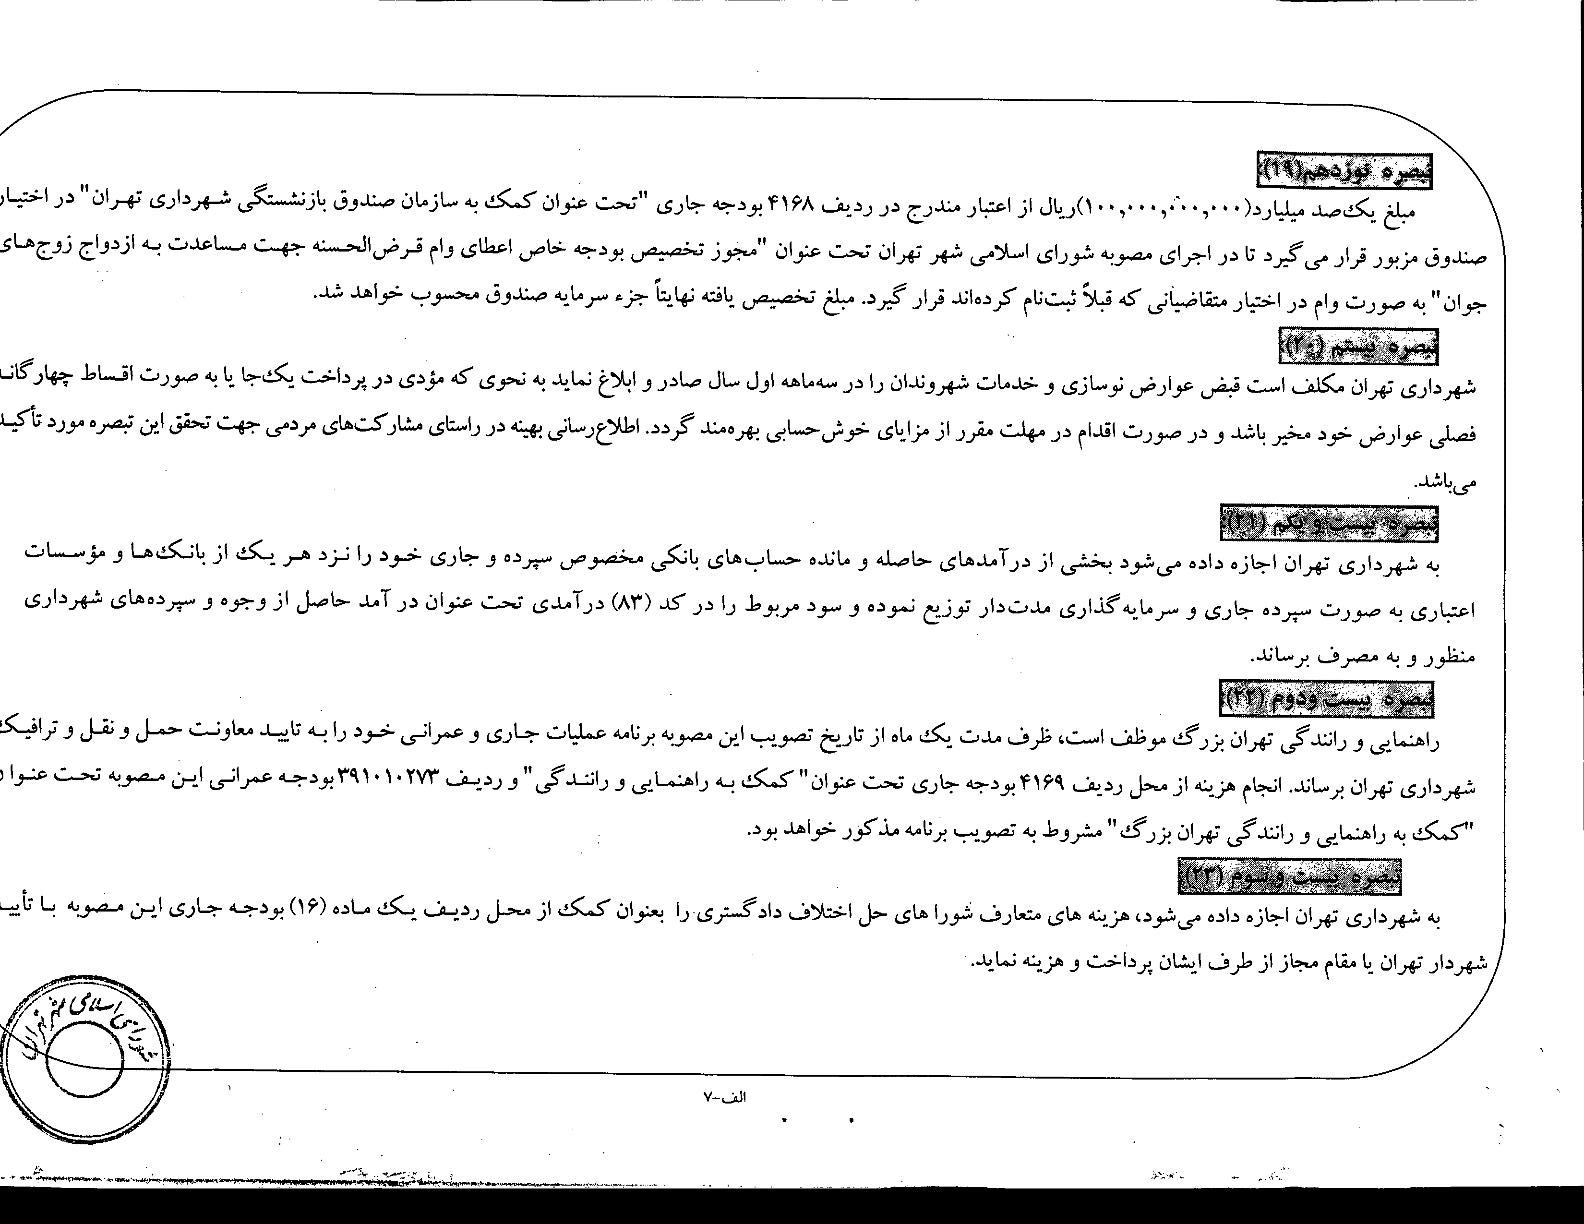 تبصره نوزدهم(۱۹):
مبلغ یک‌صد میلیارد(۱۰۰,۰۰۰,۰۰۰,۰۰۰)ریال از اعتبار مندرج در ردیف ۴۱۶۸ بودجه جاری "تحت عنوان کمک به سازمان صندوق بازنشستگی شهرداری تهران" در اختیار
صندوق مزبور قرار می‌گیرد تا در اجرای مصوبه شورای اسلامی شهر تهران تحت عنوان "مجوز تخصیص بودجه خاص اعطای وام قرض‌الحسنه جهت مساعدت به ازدواج زوج‌های
جوان" به صورت وام در اختیار متقاضیانی که قبلاً ثبت‌نام کرده‌اند قرار گیرد. مبلغ تخصیص یافته نهایتاً جزء سرمایه صندوق محسوب خواهد شد.
تبصره بیستم (۲۰):
شهرداری تهران مکلف است قبض عوارض نوسازی و خدمات شهروندان را در سه‌ماهه اول سال صادر و ابلاغ نماید به نحوی که مؤدی در پرداخت یک‌جا یا به صورت اقساط چهارگانه
فصلی عوارض خود مخیر باشد و در صورت اقدام در مهلت مقرر از مزایای خوش‌حسابی بهره‌مند گردد. اطلاع‌رسانی بهینه در راستای مشارکت‌های مردمی جهت تحقق این تبصره مورد تأکید
می‌باشد.
تبصره بیست و یکم (۲۱):
به شهرداری تهران اجازه داده می‌شود بخشی از درآمدهای حاصله و مانده حساب‌های بانکی مخصوص سپرده و جاری خود را نزد هر یک از بانک‌ها و مؤسسات
اعتباری به صورت سپرده جاری و سرمایه‌گذاری مدت‌دار توزیع نموده و سود مربوط را در کد (۸۳) درآمدی تحت عنوان در آمد حاصل از وجوه و سپرده‌های شهرداری
منظور و به مصرف برساند.
تبصره بیست ودوم (۲۲):
راهنمایی و رانندگی تهران بزرگ موظف است، ظرف مدت یک ماه از تاریخ تصویب این مصوبه برنامه عملیات جاری و عمرانی خود را به تایید معاونت حمل و نقل و ترافیک
شهرداری تهران برساند. انجام هزینه از محل ردیف ۴۱۶۹ بودجه جاری تحت عنوان" کمک به راهنمایی و رانندگی" و ردیف ۳۹۱۰۱۰۲۷۳ بودجه عمرانی این مصوبه تحت عنوان
"کمک به راهنمایی و رانندگی تهران بزرگ" مشروط به تصویب برنامه مذکور خواهد بود.
تبصره بیست و سوم (۲۳):
به شهرداری تهران اجازه داده می‌شود، هزینه های متعارف شورا های حل اختلاف دادگستری را بعنوان کمک از محل ردیف یک ماده (۱۶) بودجه جاری این مصوبه با تأیید
شهردار تهران یا مقام مجاز از طرف ایشان پرداخت و هزینه نماید.
شورای اسلامی شهر تهران
الف-۷